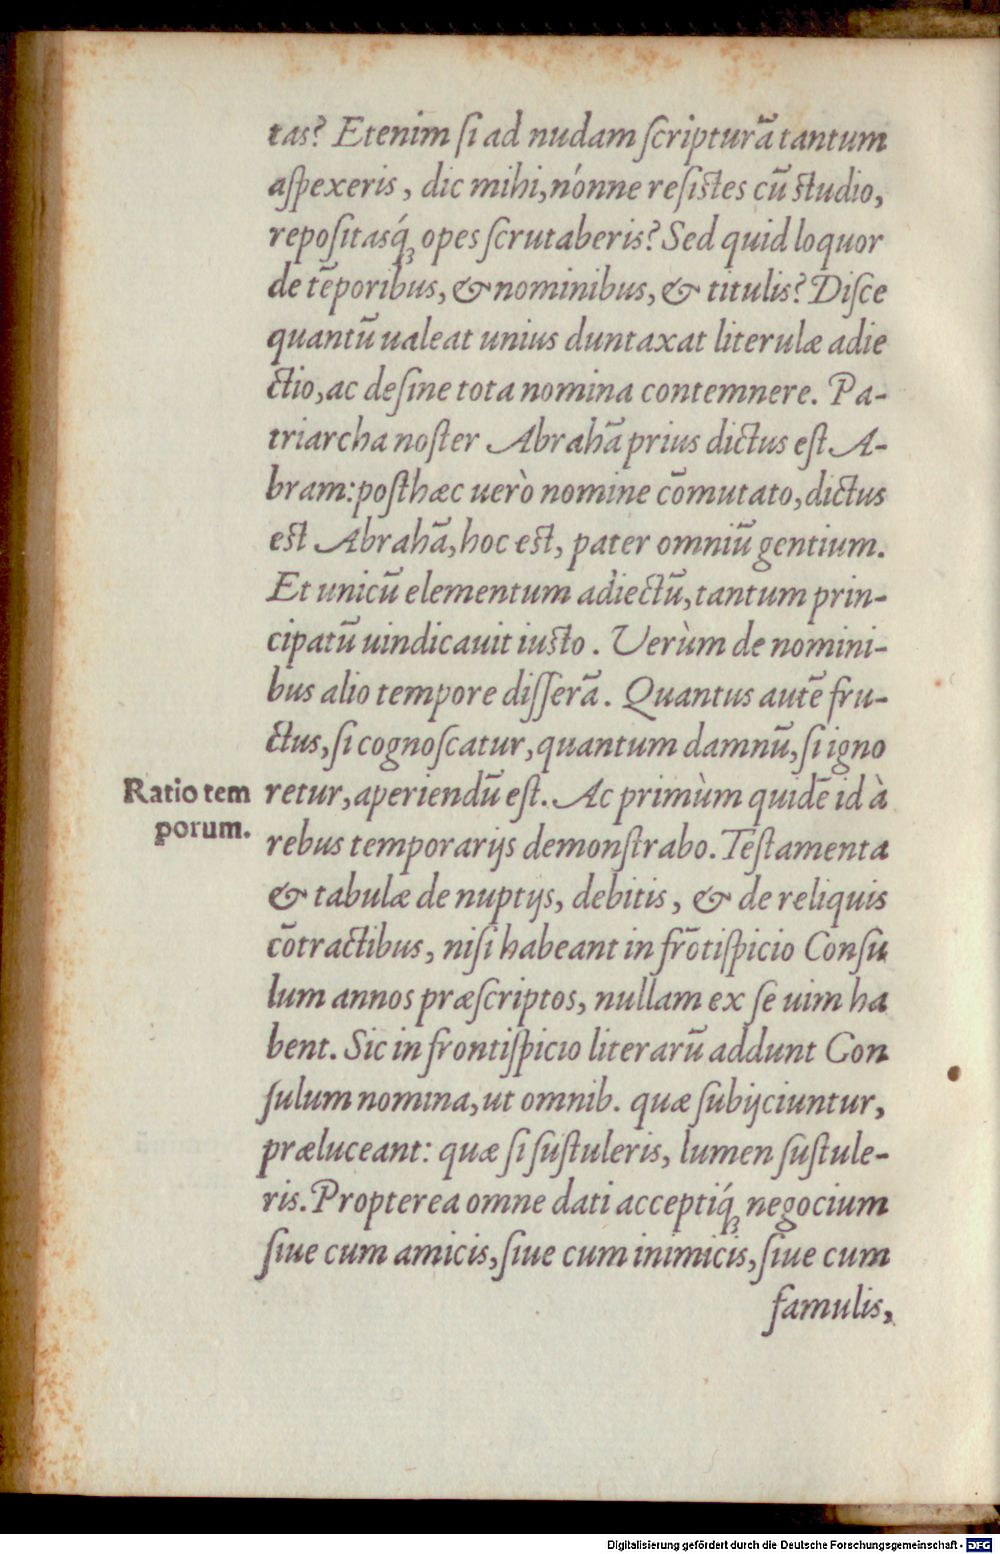 tas? Etenim ſi ad nudam ſcripturā tantum
aſpexeris, dic mihi, nónne reſistes cū studio,
repoſitasq́ꝫ opes ſcrutaberis? Sed quid loquor
de tēporibus, & nominibus, & titulis? Diſce
quantū ualeat unius duntaxat literulæ adie
ctio, ac deſine tota nomina contemnere. Pa-
triarcha noſter Abrahā prius dictus eſt A-
bram: poſthæc uerò nomine cōmutato, dictus
est Abrahā, hoc est, pater omniū gentium.
Et unicū elementum adiectū, tantum prin-
cipatū uindicauit iusto. Verùm de nomini-
bus alio tempore diſſerā. Quantus autē fru-
ctus, ſi cognoſcatur, quantum damnū, ſi igno
Ratio tem
porum.
retur, aperiendū eſt. Ac primùm quidē id à
rebus temporarijs demonſtrabo. Teſtamenta
& tabulæ de nuptijs, debitis, & de reliquis
cōtractibus, niſi habeant in frōtiſpicio Conſu
lum annos præſcriptos, nullam ex ſe uim ha
bent. Sic in frontiſpicio literarū addunt Con
ſulum nomina, ut omnib. quæ ſubijciuntur,
præluceant: quæ ſi ſuſtuleris, lumen ſuſtule-
ris. Propterea omne dati acceptiq́ꝫ negocium
ſiue cum amicis, ſiue cum inimicis, ſiue cum
famulis,
Digitalisierung gefördert durch die Deutsche Forschungsgemeinschaft - DFG